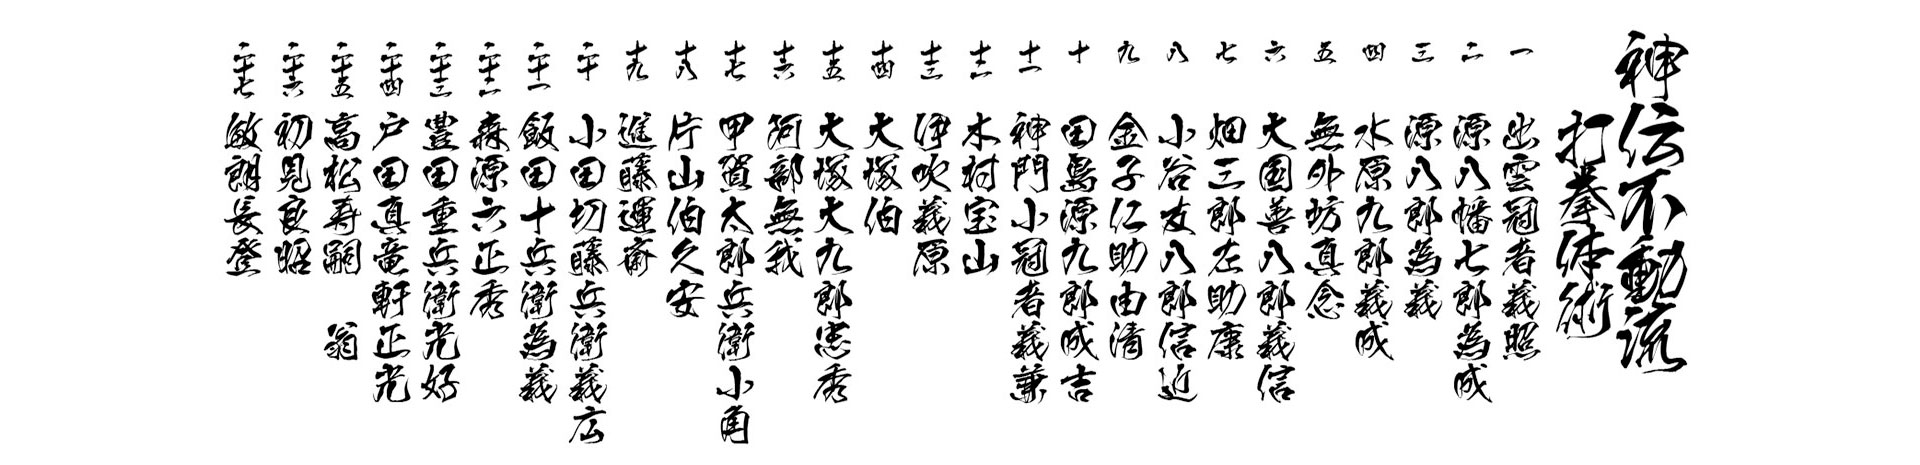 神伝不動流
打拳体術
一 出雲冠者義照
二 源八幡七郎為成
三 源八郎為義
四 水原九郎義成
五 無外坊真念
六 大国善八郎義信
七 畑三郎左助康
八 小谷友八郎信近
九 金子仁助由清
十 田島源九郎成吉
十一 神門小冠者義兼
十二 木村宝山
十三 伊吹義原
十四 大塚伯
十五 大塚大九郎忠秀
十六 阿部無我
十七 甲賀太郎兵衛小角
十八 片山伯久安
十九 進藤運斎
二十 小田切藤兵衛義広
二十一 飯田十兵衛為義
二十二 森源六正秀
二十三 豊田重兵衛光好
二十四 戸田真竜軒正光
二十五 高松寿嗣 翁
二十六 初見良昭
二十七 敏朗長登